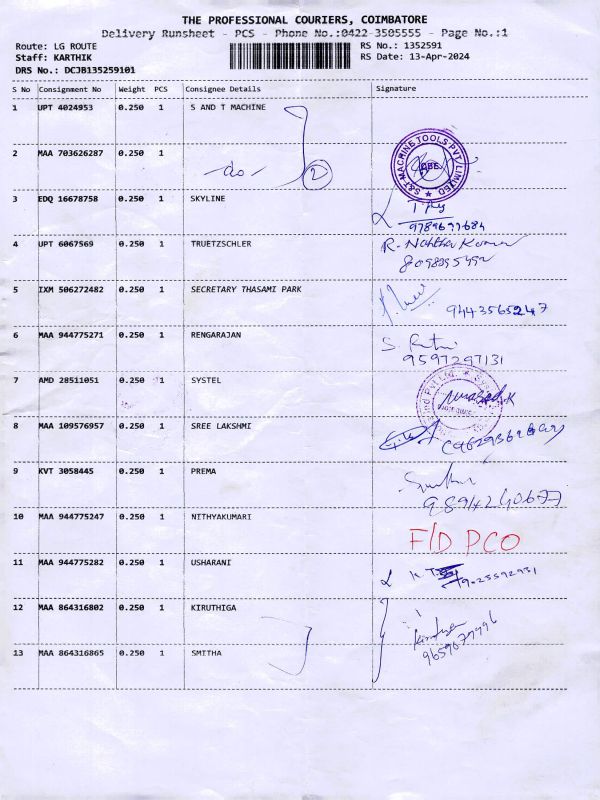 THE PROFESSIONAL COURIERS, COIMBATORE
Delivery Runsheet - PCS - Phone No.:0422-3505555 - Page No.:1
Route: LG ROUTE RS No.: 1352591
Staff: KARTHIK RS Date: 13-Apr-2024
DRS No.: DCJB135259101
S No Consignment No Weight PCS Consignee Details Signature
1 UPT 4024953 0.250 1 S AND T MACHINE
2 MAA 703626287 0.250 1
-do- 2
S&T MACHINE TOOLS PVT LIMITED
CBE
3 EDQ 16678758 0.250 1 SKYLINE
9789697684
4 UPT 6067569 0.250 1 TRUETZSCHLER R. Kumar
5 IXM 506272482 0.250 1 SECRETARY THASAMI PARK
9443565247
6 MAA 944775271 0.250 1 RENGARAJAN S.
9597297131
7 AMD 28511051 0.250 1 SYSTEL
Pvt Ltd.
8 MAA 109576957 0.250 1 SREE LAKSHMI
9 KVT 3058445 0.250 1 PREMA
9894240677
10 MAA 944775247 0.250 1 NITHYAKUMARI
F/D PCO
11 MAA 944775282 0.250 1 USHARANI
12 MAA 864316802 0.250 1 KIRUTHIGA
13 MAA 864316865 0.250 1 SMITHA